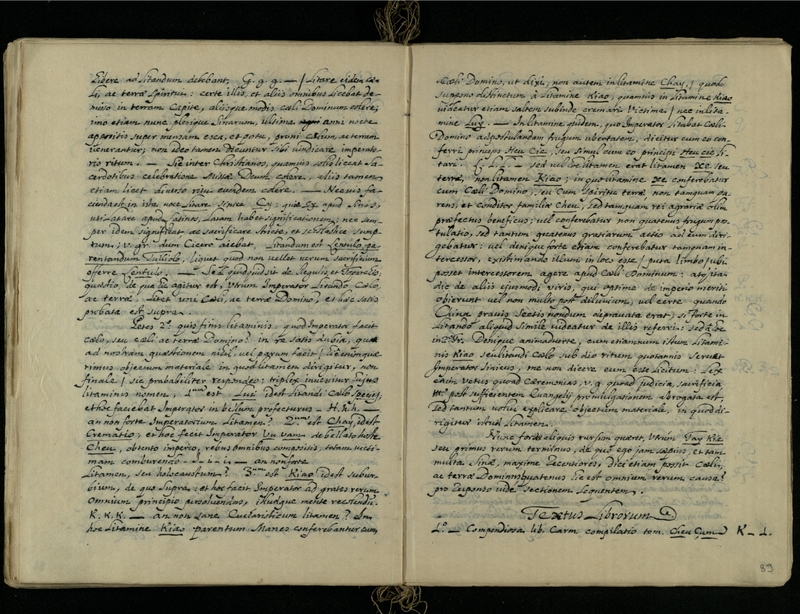 lidere ad litandum debebant; G. g. g. — / Litare eidem cæ-
li ac terræ Spiritui: certe illis, et aliis omnibus licebat de-
misso in terram Capite, aliisque modis cæli Dominum colere;
imo etiam nunc plerique Sinarum, ultima anni nocte
appositis super mensam esca, et potu, proni cælum, ac terram
venerantur; non ideo tamen dicuntur sibi vindicare imperato-
rio ritum. — Sic inter Christianos, quamvis solis liceat Sa-
cerdotibus celebratione Missæ Deum colere, aliis tamen
etiam licet diverso ritu eundem colere. — Neque fa-
ciendum in ista voce litare
uti Litare apud Latinos, latam habet significationem; nec sem-
per idem significat ac sacrificare stricte, et scholastice sump-
tum; v. gr. dum Cicero aiebat, Litandum est Lentulo, pa-
rentandum liquet quod non vellet verum sacrificium
offerre Lentulo. —
quæstio, de qua hic agitur est, Utrum Imperator
ac terræ, litet uni Cæli, ac terræ Domino, et hoc satis
probata est supra.
Petes 2.º quis finis litaminis, quod Imperator facit
cælo, seu cæli ac terræ Domino? in re satis dubia, quæ
ad nostram quæstionem nihil, vel parum facit /
rimus objectum materiale, in quod litamen dirigitur, non
finale / sic probabiliter respondeo: triplex invenitur hujus
litaminis nomen, 1.mum est Lui idest litandi Cælo Species,
et hoc faciebat Imperator in bellum profecturus — H. h. h. —
an non forte Imperatorium Litamen? 2.dum est Chay, idest
Crematio, et hoc fecit Imperator Vu vam debellato hoste
Cheu, obtento imperio, rebus omnibus compositis, totam victi-
mam comburendo — an non forte
Litamen, seu holocaustum? 3.um est Kiao, idest subur-
bium, de quo supra, et hoc facit Imperator ad grates rerum
Omnium principio persolvendas,
K. K. K. — an non sane Eucharisticum litamen? In
hoc Litamine Kiao parentum Manes conferebantur cum
Cæli Domino, ut dixi, non autem in litamine Chay, / quod
suppono distinctum à Litamine Kiao, quamvis in Litamine Kiao
videatur etiam saltem subinde cremari Victima / nec in lita-
mine Luy. — In litamine quidem, quo Imperator litabat Cæli
Domino ad postulandam frugum ubertatem, dicitur cum eo con-
ferri princeps Heu Cie, seu simul cum eo principi Heu cie li-
tari. — sed vel hoc litamen erat litamen Xe seu
terræ, non litamen Kiao; in quo litamine Xe conferebatur
cum Cæli Domino, seu cum Spiritu terræ non tamquam pa-
rens, et Conditor familiæ Cheu, sed tamquam rei agrariæ olim
præfectus beneficus; vel conferebatur non quatenus frugum pos-
tulatio, sed tantum quatenus gratiarum actio ad eum diri-
gebatur: vel denique forte etiam conferebatur tamquam in-
tercessor, existimando illum in loco esse / puta limbo / ubi
posset intercessorem agere apud Cæli Dominum:
dic de aliis ejusmodi viris, qui optime de imperio meriti
obierunt vel non multo post diluvium, vel certe quando
China pravis Sectis nondum depravata erat; si forte in
Litando aliquid simile videatur de illis referri: sed de
Denique animadverte, cum etiamnum istum Litami-
nis Kiao seu litandi Cælo sub dio ritum quotannis servet
Imperator Sinicus, me non dicere eum esse licitum: Lex
enim vetus quoad Cæremonias, v. g. quoad judicia, sacrificia
post sufficientem Evangelij promulgationem abrogata est,
sed tantum volui explicare objectum materiale, in quod di-
rigitur istud Litamen.
Nunc forte aliquis rursum quæret, Utrum Tay Kie,
seu primus rerum terminus, de quo ego jam sæpius, et tam
multa Sinæ, maxime recentiores, dici etiam possit Cæli,
ac terræ Dominus, quatenus hic est omnium rerum causa?
pro responso vide Sectionem Sequentem.
Textus Librorum
1.º — Compendiosa lib. Carm. compilatio tom. Cheu Çum K — L.
89